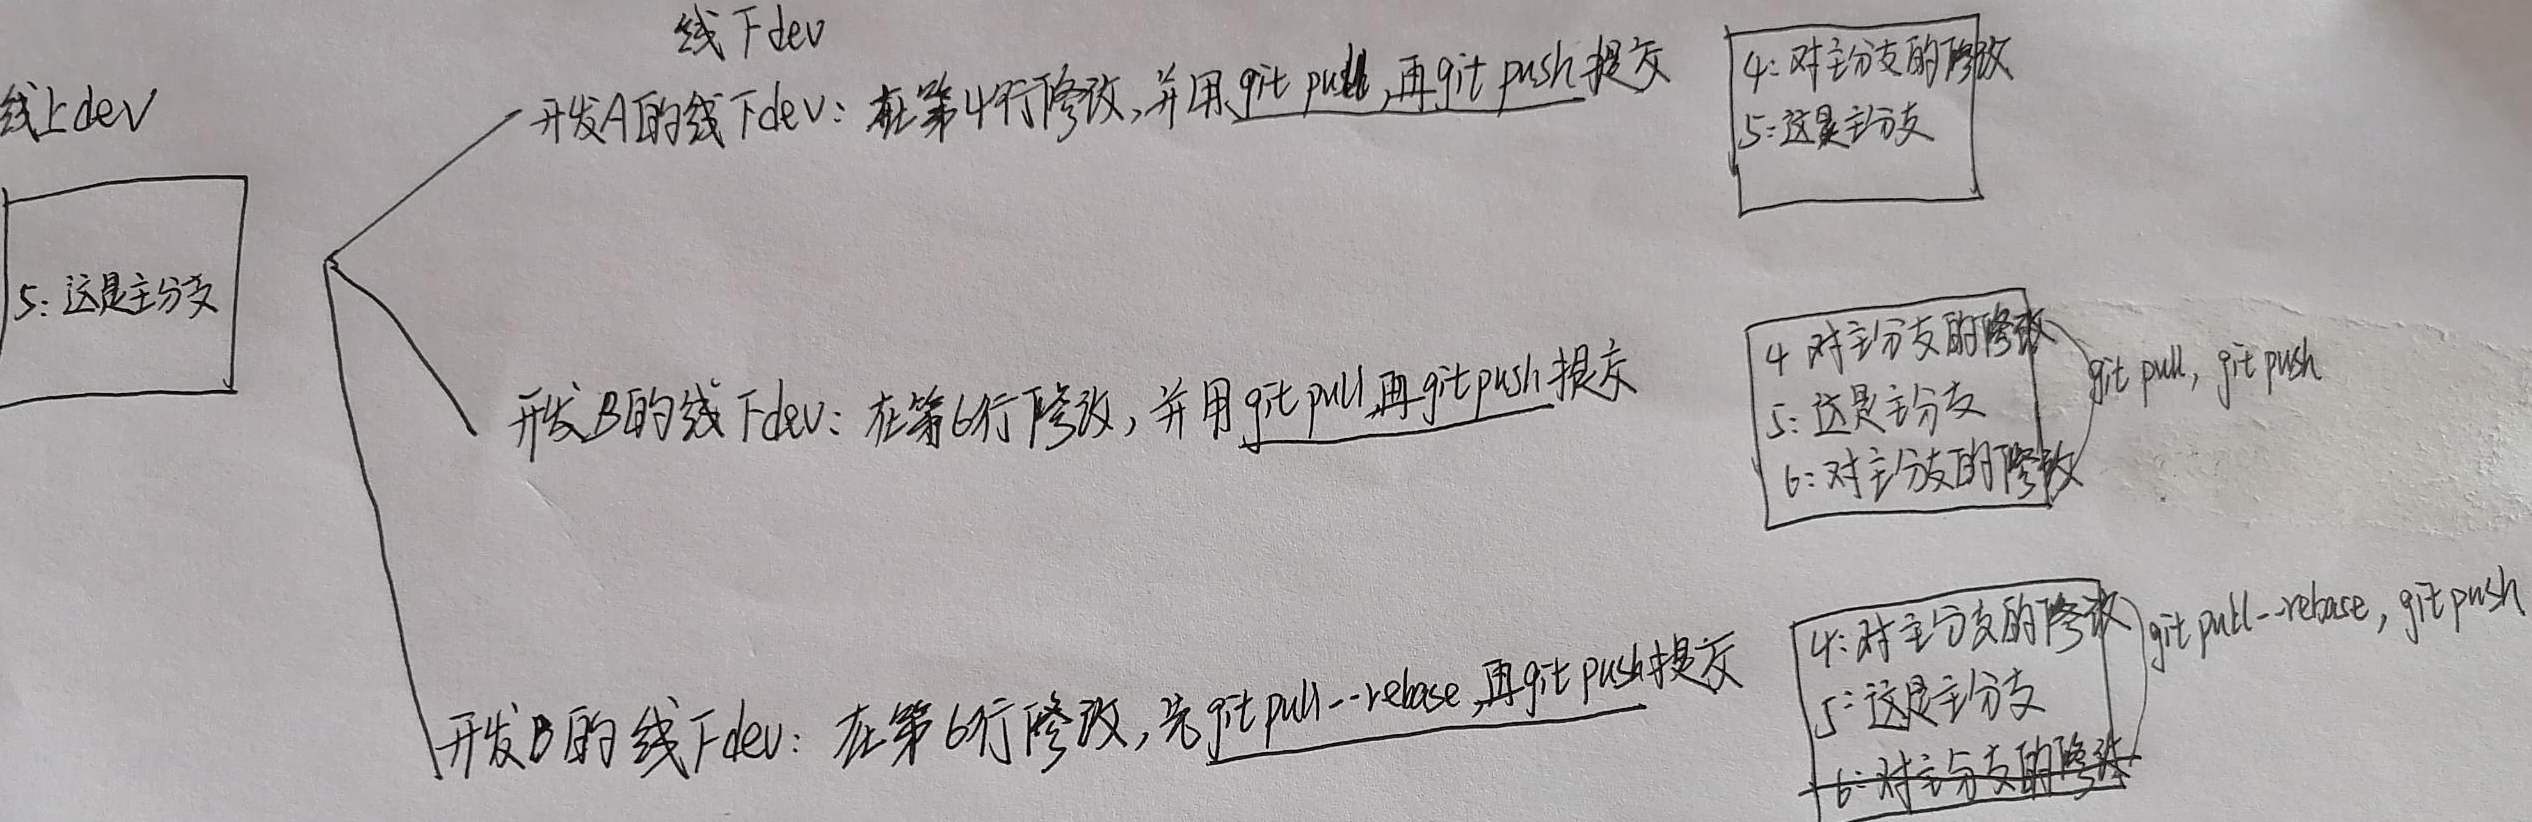 线下dev
线上dev
开发A的线下dev：在第4行修改，并用git pull，再git push提交
4：对主分支的修改
5：这是主分支
5：这是主分支
开发B的线下dev：在第6行修改，并用git pull，再git push提交
4 对主分支的修改
5：这是主分支
6：对主分支的修改
git pull，git push
开发B的线下dev：在第6行修改，先git pull--rebase，再git push提交
4：对主分支的修改
5：这是主分支
6：对主分支的修改
git pull--rebase，git push